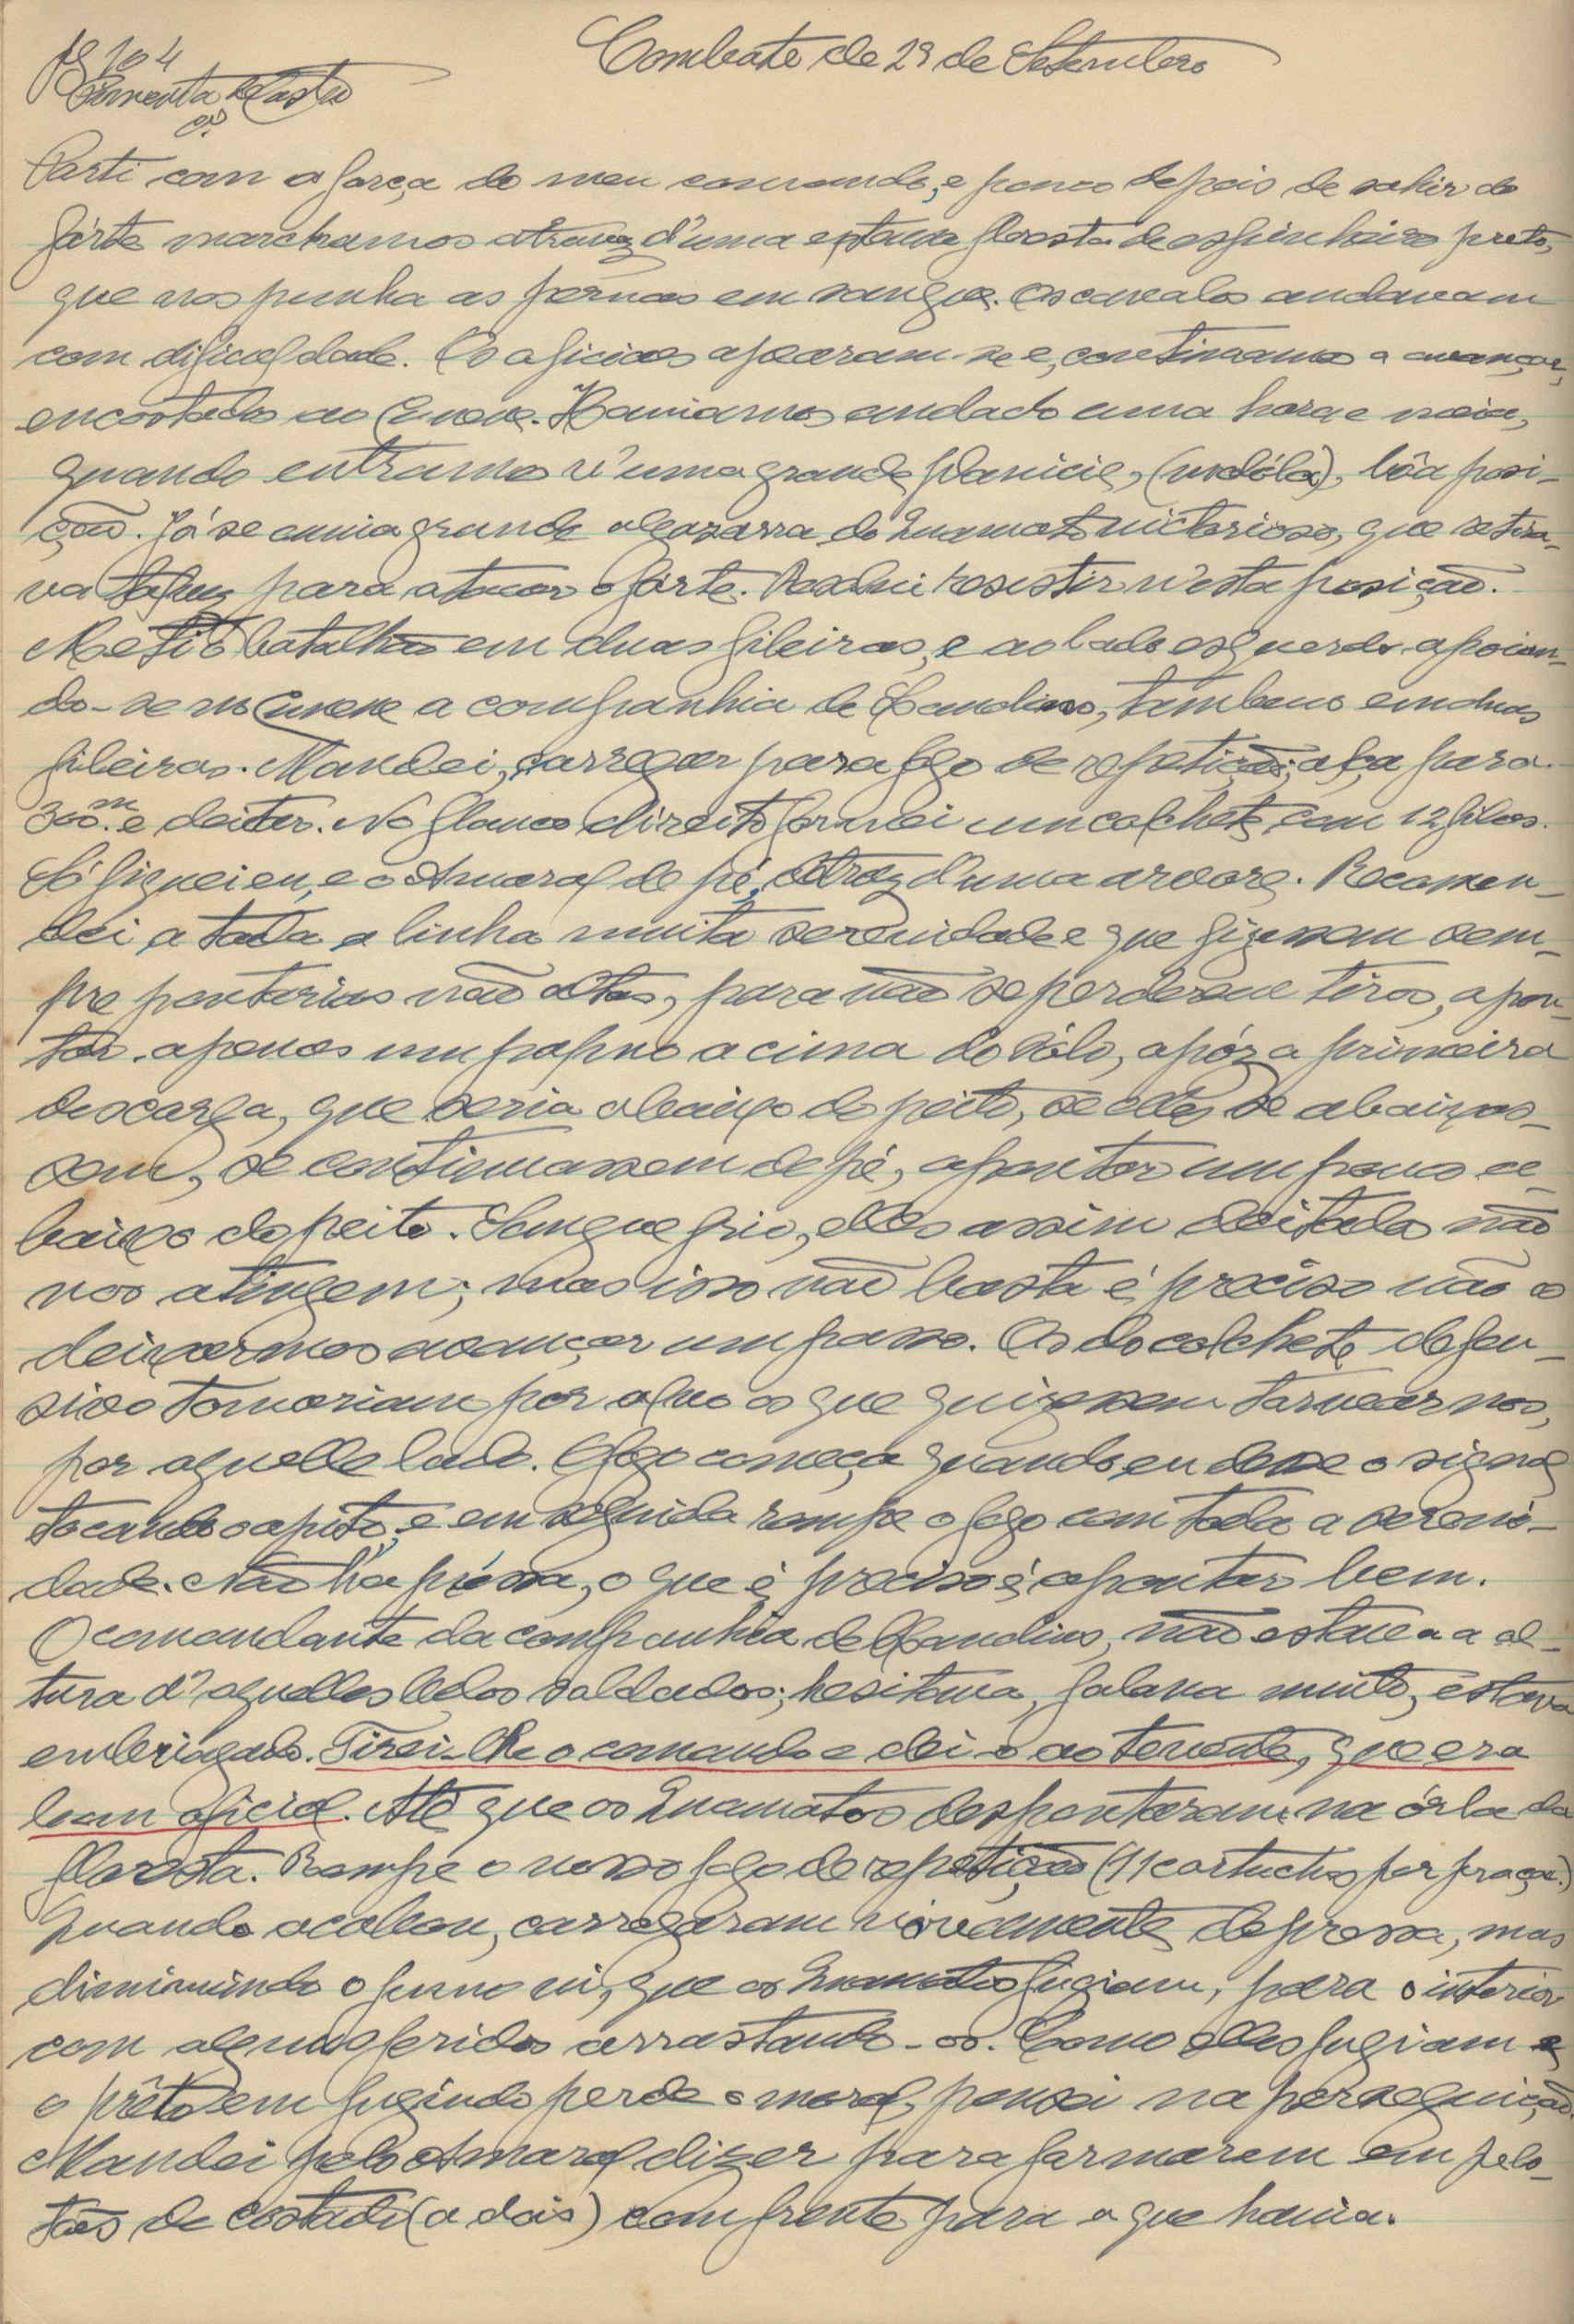 Combate de 29 de Setembro
fs 104
Pimenta de Castro
Parti com a força do meu comando, e pouco depois de sahir do
fórte marchamos atravez d'uma extensa floresta de espinheiro preto,
que nos punha as pernas em sangue. Os cavalos andavam
com dificuldade. Os oficiaes apearam-se e, continuamos a avançar,
encostados ao Cunene. Haviamos andado uma hora e meia,
quando entramos n'uma grande planicie, (mulóla), bôa posi-
ção. Já se ouvia grande algazarra do Quamato victorioso, que retira-
va talvez para atacar o fórte. Resolvi resistir n'esta posição.
Meti o batalhão em duas fileiras, e ao lado esquerdo apoian-
do-se no Cunene a companhia de Landins, tambem em duas
fileiras. Mandei, carregar para fogo de repetição; alça para
300.m e deitar. No flanco direito formei um colchete com 12 filas.
Só fiquei eu, e o Amaral de pé, atraz d'uma arvore. Recomen-
dei a toda a linha muita serenidade e que fizessem sem-
pre pontarias não altas, para não se perderem tiros, apon-
tar apenas um palmo acima do sólo, apóz a primeira
descarga, que seria abaixo do peito, se elles se abaixas-
sem, se continuassem de pé, apontar um pouco a-
baixo do peito. Sangue frio, elles assim deitados não
nos atingem; mas isso não basta é preciso não os
deixarmos avançar um passo. Os do colchete defen-
sivo tomariam por alvo os que quizessem tornear-nos,
por aquelle lado. O fogo começa quando eu desse o signal
tocando o apito, e em seguida rompe o fogo com toda a sereni-
dade. Não há préssa, o que é preciso é apontar bem.
O comandante da companhia de Landins, não estava a al-
tura d'aquelles belos soldados; hesitava, falava muito, estava
embriagado. Tirei-lhe o comando e dei-o ao tenente, que era
bom oficial. Até que os Quamatos despontaram na órla da
floresta. Rompe o nosso fogo de repetição (11 cartuchos por praça.)
Quando acabou, carregaram novamente depressa, mas
diminuindo o fumo vi, que os Quamatos fugiam, para o interior
com alguns feridos arrastando-os. Como elles fugiam e
o prêto em fugindo perde o moral, pensei na perseguição.
Mandei pelo Amaral dizer para formarem em pelo-
tões de costado (a dois) com frente para a que havia.